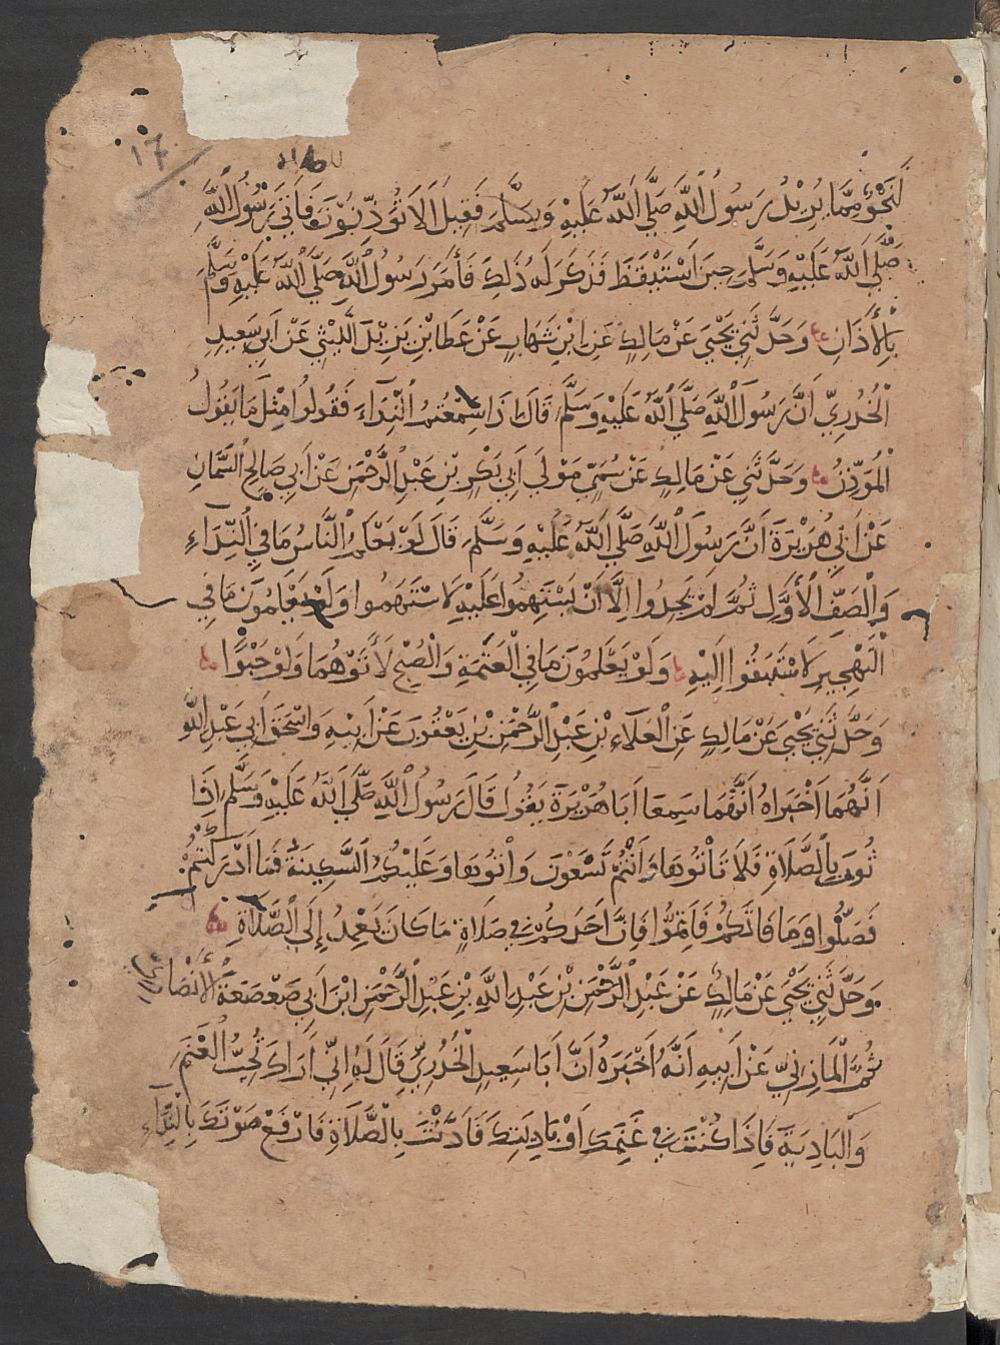 17
لَنَحْوٌ مِمَّا يُرِيدُ رَسُولُ اللَّهِ صَلَّى اللَّهُ عَلَيْهِ وَسَلَّمَ فَقِيلَ أَلَا تُوَذِّنُونَ فَأَتَى رَسُولَ اللَّهِ
صَلَّى اللَّهُ عَلَيْهِ وَسَلَّمَ حِينَ اسْتَيْقَظَ فَذَكَرَ لَهُ ذَلِكَ فَأَمَرَ رَسُولُ اللَّهِ صَلَّى اللَّهُ عَلَيْهِ وَسَلَّمَ
بِالْأَذَانِ وَحَدَّثَنِي يَحْيَى عَنْ مَالِكٍ عَنِ ابْنِ شِهَابٍ عَنْ عَطَا بْنِ يَزِيدَ اللَّيْثِيِّ عَنْ أَبِي سَعِيدٍ
الْخُدْرِيِّ أَنَّ رَسُولَ اللَّهِ صَلَّى اللَّهُ عَلَيْهِ وَسَلَّمَ قَالَ إِذَا سَمِعْتُمُ النِّدَاءَ فَقُولُوا مِثْلَ مَا يَقُولُ
الْمُوَذِّنُ وَحَدَّثَنِي عَنْ مَالِكٍ عَنْ سُمَيٍّ مَوْلَى أَبِي بَكْرِ بْنِ عَبْدِ الرَّحْمَنِ عَنْ أَبِي صَالِحٍ السَّمَّانِ
عَنْ أَبِي هُرَيْرَةَ أَنَّ رَسُولَ اللَّهِ صَلَّى اللَّهُ عَلَيْهِ وَسَلَّمَ قَالَ لَوْ يَعْلَمُ النَّاسُ مَا فِي النِّدَاءِ
وَالصَّفِّ الْأَوَّلِ ثُمَّ لَمْ يَجِدُوا إِلَّا أَنْ يَسْتَهِمُوا عَلَيْهِ لَاسْتَهَمُوا وَلَوْ يَعْلَمُونَ مَا فِي
التَّهْجِيرِ لَاسْتَبَقُوا إِلَيْهِ وَلَوْ يَعْلَمُونَ مَا فِي الْعَتَمَةِ وَالصُّبْحِ لَأَتَوْهُمَا وَلَوْ حَبْوًا
وَحَدَّثَنِي يَحْيَى عَنْ مَالِكٍ عَنِ الْعَلَاءِ بْنِ عَبْدِ الرَّحْمَنِ بْنِ يَعْقُوبَ عَنْ أَبِيهِ وَإِسْحَقَ أَبِي عَبْدِ اللَّهِ
أَنَّهُمَا أَخْبَرَاهُ أَنَّهُمَا سَمِعَا أَبَا هُرَيْرَةَ يَقُولُ قَالَ رَسُولُ اللَّهِ صَلَّى اللَّهُ عَلَيْهِ وَسَلَّمَ إِذَا
ثُوِّبَ بِالصَّلَاةِ فَلَا تَأْتُوهَا وَأَنْتُمْ تَسْعَوْنَ وَأْتُوهَا وَعَلَيْكُمُ السَّكِينَةُ فَمَا أَدْرَكْتُمْ
فَصَلُّوا وَمَا فَاتَكُمْ فَأَتِمُّوا فَإِنَّ أَحَدَكُمْ فِي صَلَاةٍ مَا كَانَ يَعْمِدُ إِلَى الصَّلَاةِ
وَحَدَّثَنِي يَحْيَى عَنْ مَالِكٍ عَنْ عَبْدِ الرَّحْمَنِ بْنِ عَبْدِ اللَّهِ بْنِ عَبْدِ الرَّحْمَنِ ابْنِ أَبِي صَعْصَعَةَ الْأَنْصَارِيِّ
ثُمَّ الْمَازِنِيِّ عَنْ أَبِيهِ أَنَّهُ أَخْبَرَهُ أَنَّ أَبَا سَعِيدٍ الْخُدْرِيَّ قَالَ لَهُ إِنِّي أَرَاكَ تُحِبُّ الْغَنَمَ
وَالْبَادِيَةَ فَإِذَا كُنْتَ فِي غَنَمِكَ أَوْ بَادِيَتِكَ فَأَذَّنْتَ بِالصَّلَاةِ فَارْفَعْ صَوْتَكَ بِالنِّدَاءِ